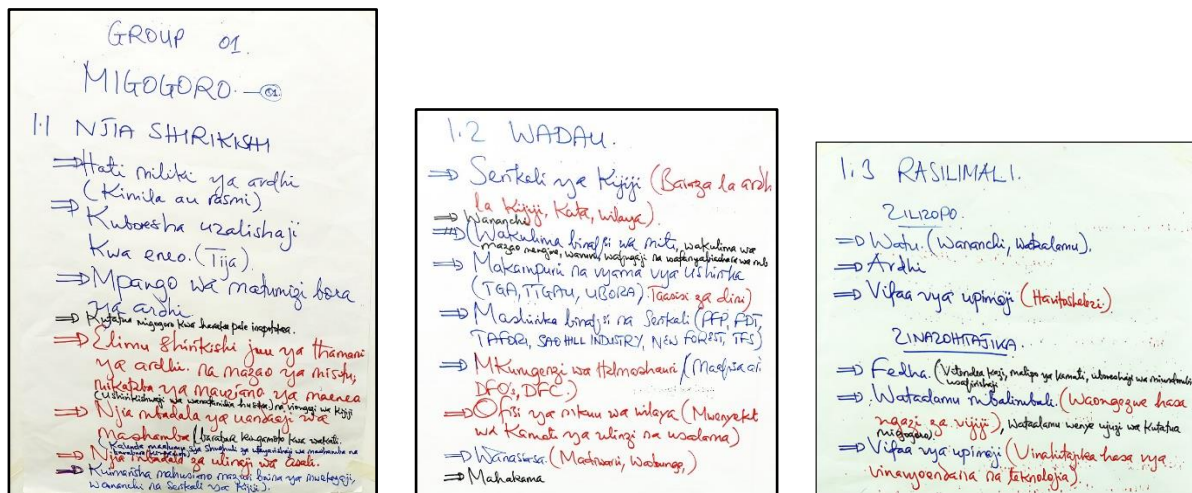 GROUP 01.
MIGOGORO. — 01
1.1 NJIA SHIRIKISHI
⇒ Hati miliki ya ardhi
(Kimila au rasmi)
⇒ Kuboresha uzalishaji
Kwa eneo. (Tija)
⇒ Mpango wa matumizi bora
ya ardhi
⇒ Kutatua migogoro kwa haraka pale inapotokea.
⇒ Elimu Shirikishi juu ya thamani
ya ardhi. na mazao ya misitu,
mikataba ya mauziano ya maeneo
(Ushirikishwaji wa wanafamilia husika) na viongozi wa Kijiji
⇒ Njia mbadala ya uandaaji wa
mashamba (barabara kwa wakati.
⇒ Njia mbadala za ulinzi wa
⇒ Kuimarisha mahusiano mazuri baina ya mwekezaji,
Wananchi na Serikali ya Kijiji).
1.2 WADAU.
⇒ Serikali ya Kijiji (Baraza la ardhi
la Kijiji, Kata, wilaya).
⇒ Wananchi
⇒ (Wakulima binafsi wa miti, wakulima wa
mazao mengine, wavuna, wafugaji na wafanyabiashara wa
⇒ Makampuni na vyama vya Ushirika
(TGA, TTGAU, UBORA). Taasisi za dini)
⇒ Mashirika binafsi na Serikali (PFP, FDT,
TAFORI, SAO HILL INDUSTRY, NEW FOREST, TFS)
⇒ MKurugenzi wa Halmashauri (Maafisa
DFO's, DFC.)
⇒ Ofisi ya mkuu wa wilaya (Mwenyekiti
wa Kamati ya ulinzi na usalama)
⇒ Wanasiasa. (Madiwani, Wabunge,)
⇒ Mahakama
1.3 RASILIMALI.
ZILIZOPO.
⇒ Watu. (Wananchi, wataalamu).
⇒ Ardhi
⇒ Vifaa vya upimaji (Havitoshelezi).
ZINAZOHITAJIKA.
⇒ Fedha. (Vitendea kazi, malipo ya kamati, uboreshaji wa miundombinu
usafirishaji
⇒ Wataalamu mbalimbali. (Waongezwe hasa
ngazi za vijiji), wataalamu wenye ujuzi wa Kutatua
migogoro)
⇒ Vifaa vya upimaji (Vinahitajika hasa vya
vinavyoendana na teknolojia).